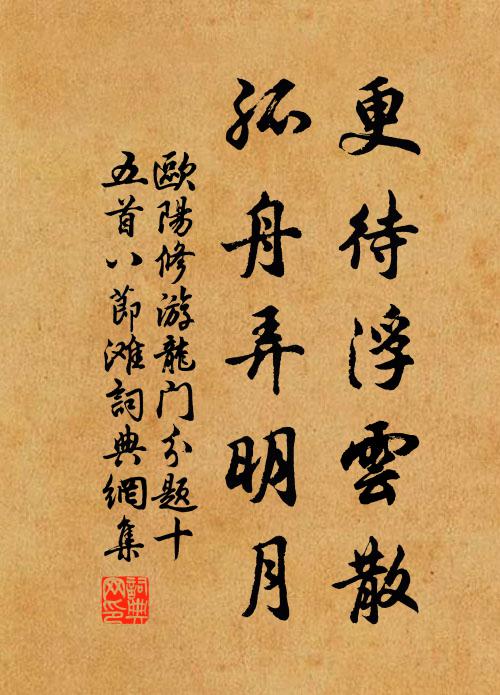 更待浮雲散
孤舟弄明月
歐陽修游龍门分題十
五首八節滩詞典網集
詞典
网印